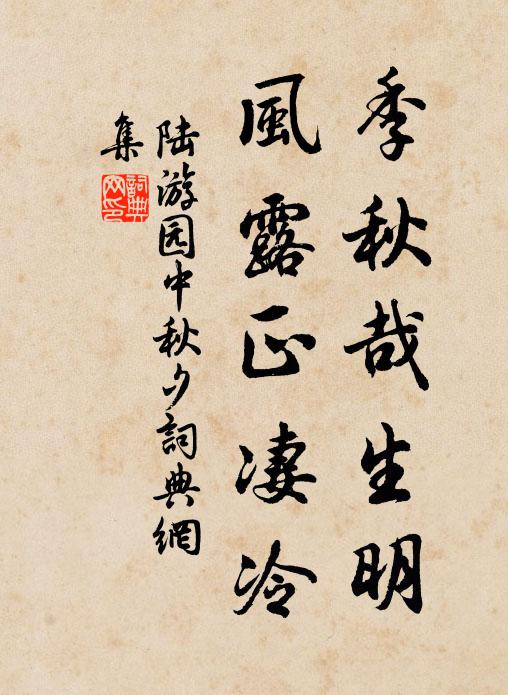 季秋哉生明
風露正凄冷
陆游园中秋夕詞典網
集
詞典
网印